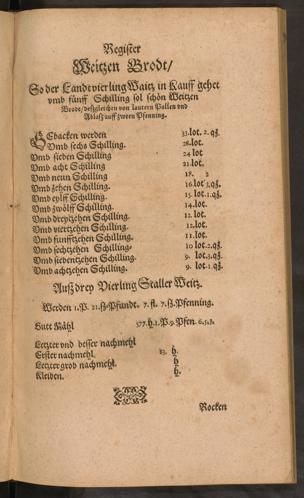 Register
Weitzen Brodt/
So der Landtvierling Waitz in Kauff gehet
vmb fünff Schilling sol schön Weitzen
Brodt/deßgleichen von lautern Pollen vnd
Ablaß auff zween Pfenning.
Gebacken werden 33.lot. 2.q̃.
Vmb sechs Schilling. 28.lot.
Vmb sieben Schilling 24 lot
Vmb acht Schilling 21.lot.
Vmb neun Schilling 18. 2
Vmb zehen Schilling. 16.lot 3.q̃.
Vmb eylff Schilling. 15.lot.1.q̃.
Vmb zwölff Schilling. 14.lot.
Vmb dreytzehen Schilling. 12 lot.
Vmb viertzehen Schilling. 12.lot.
Vmb funfftzehen Schilling. 11.lot.
Vmb sechtzehen Schilling. 10 lot.2.q̃.
Vmb siebentzehen Schilling. 9. lot.3.q̃.
Vmb achtzehen Schilling. 9. lot.1.q̃.
Auß drey Vierling Staller Weitz.
Werden 1.P. 21.ß Pfundt. 7.fl. 7.ß.Pfenning.
Gutt Mähl
Letzter vnd besser nachmehl
Erster nachmehl. 83.
Letzter grob nachmehl.
Kleiben.
Rocken